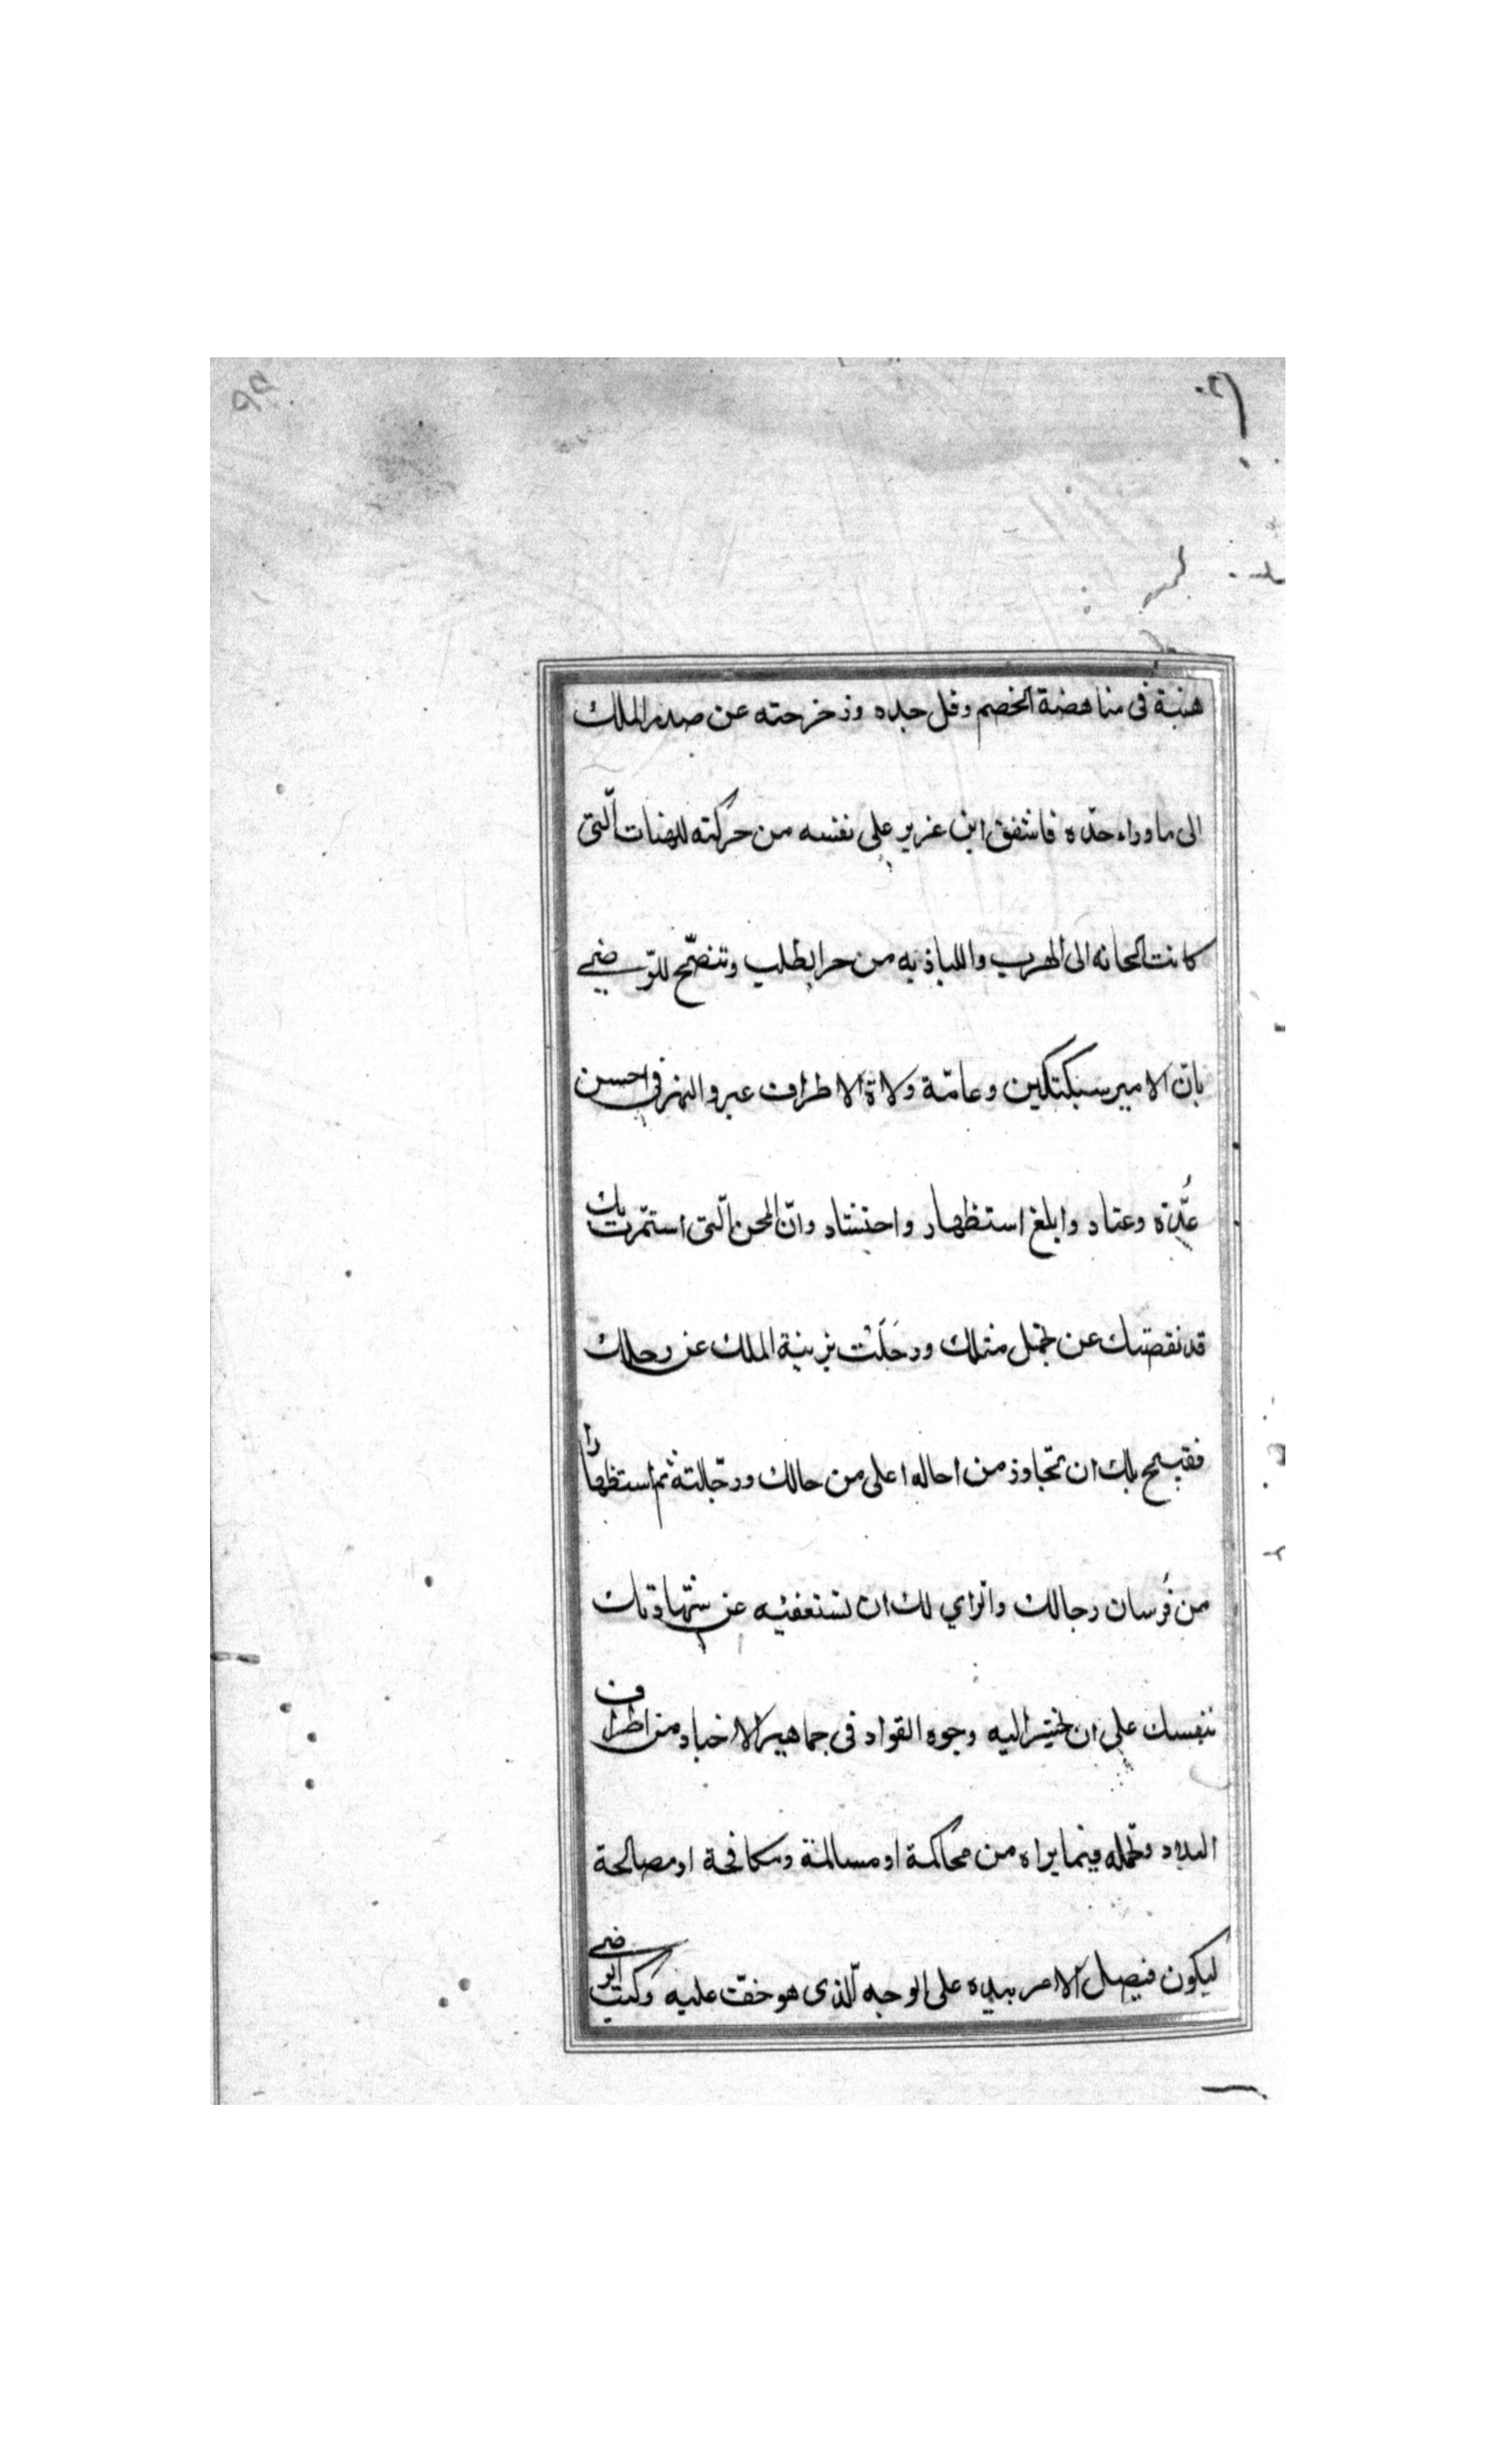 هنبة فى مناهضة الخصم وفل حده وزخرحته عن صدر الملك
الى ما وراء حدّه فاشفق ابن عزير على نفسه من حركته للهنات الّتى
كانت الجانه الى الهرب واللياذ به من حرابطلب وتنصّح للرّضى
بانّ الامير سبكتكين وعامّة ولاة الاطراف عبروا النهر فى احسن
عُدّة وعتاد وابلغ استظهار واحتشاد وانّ المحن الّتى استمرت بك
قد نقصتك عن تجمّل مثلك ورحَلَتْ بزينة الملك عن رحلك
فقبيح بك ان تجاوز من احاله اعلى من حالك ورجّالته اتم استظهارا
من فُرسان رجالك والراي لك ان تستعفيه عن شهادتك
بنفسك على ان تحيز اليه وجوه القواد فى جماهير الاخباد من اطراف
البلاد وتحمله فيما يراه من محاكمة او مسالمة ومكافحة او مصالحة
ليكون فيصل الامر بيده على الوجه الّذى هو خفّت عليه وكتب الرضى